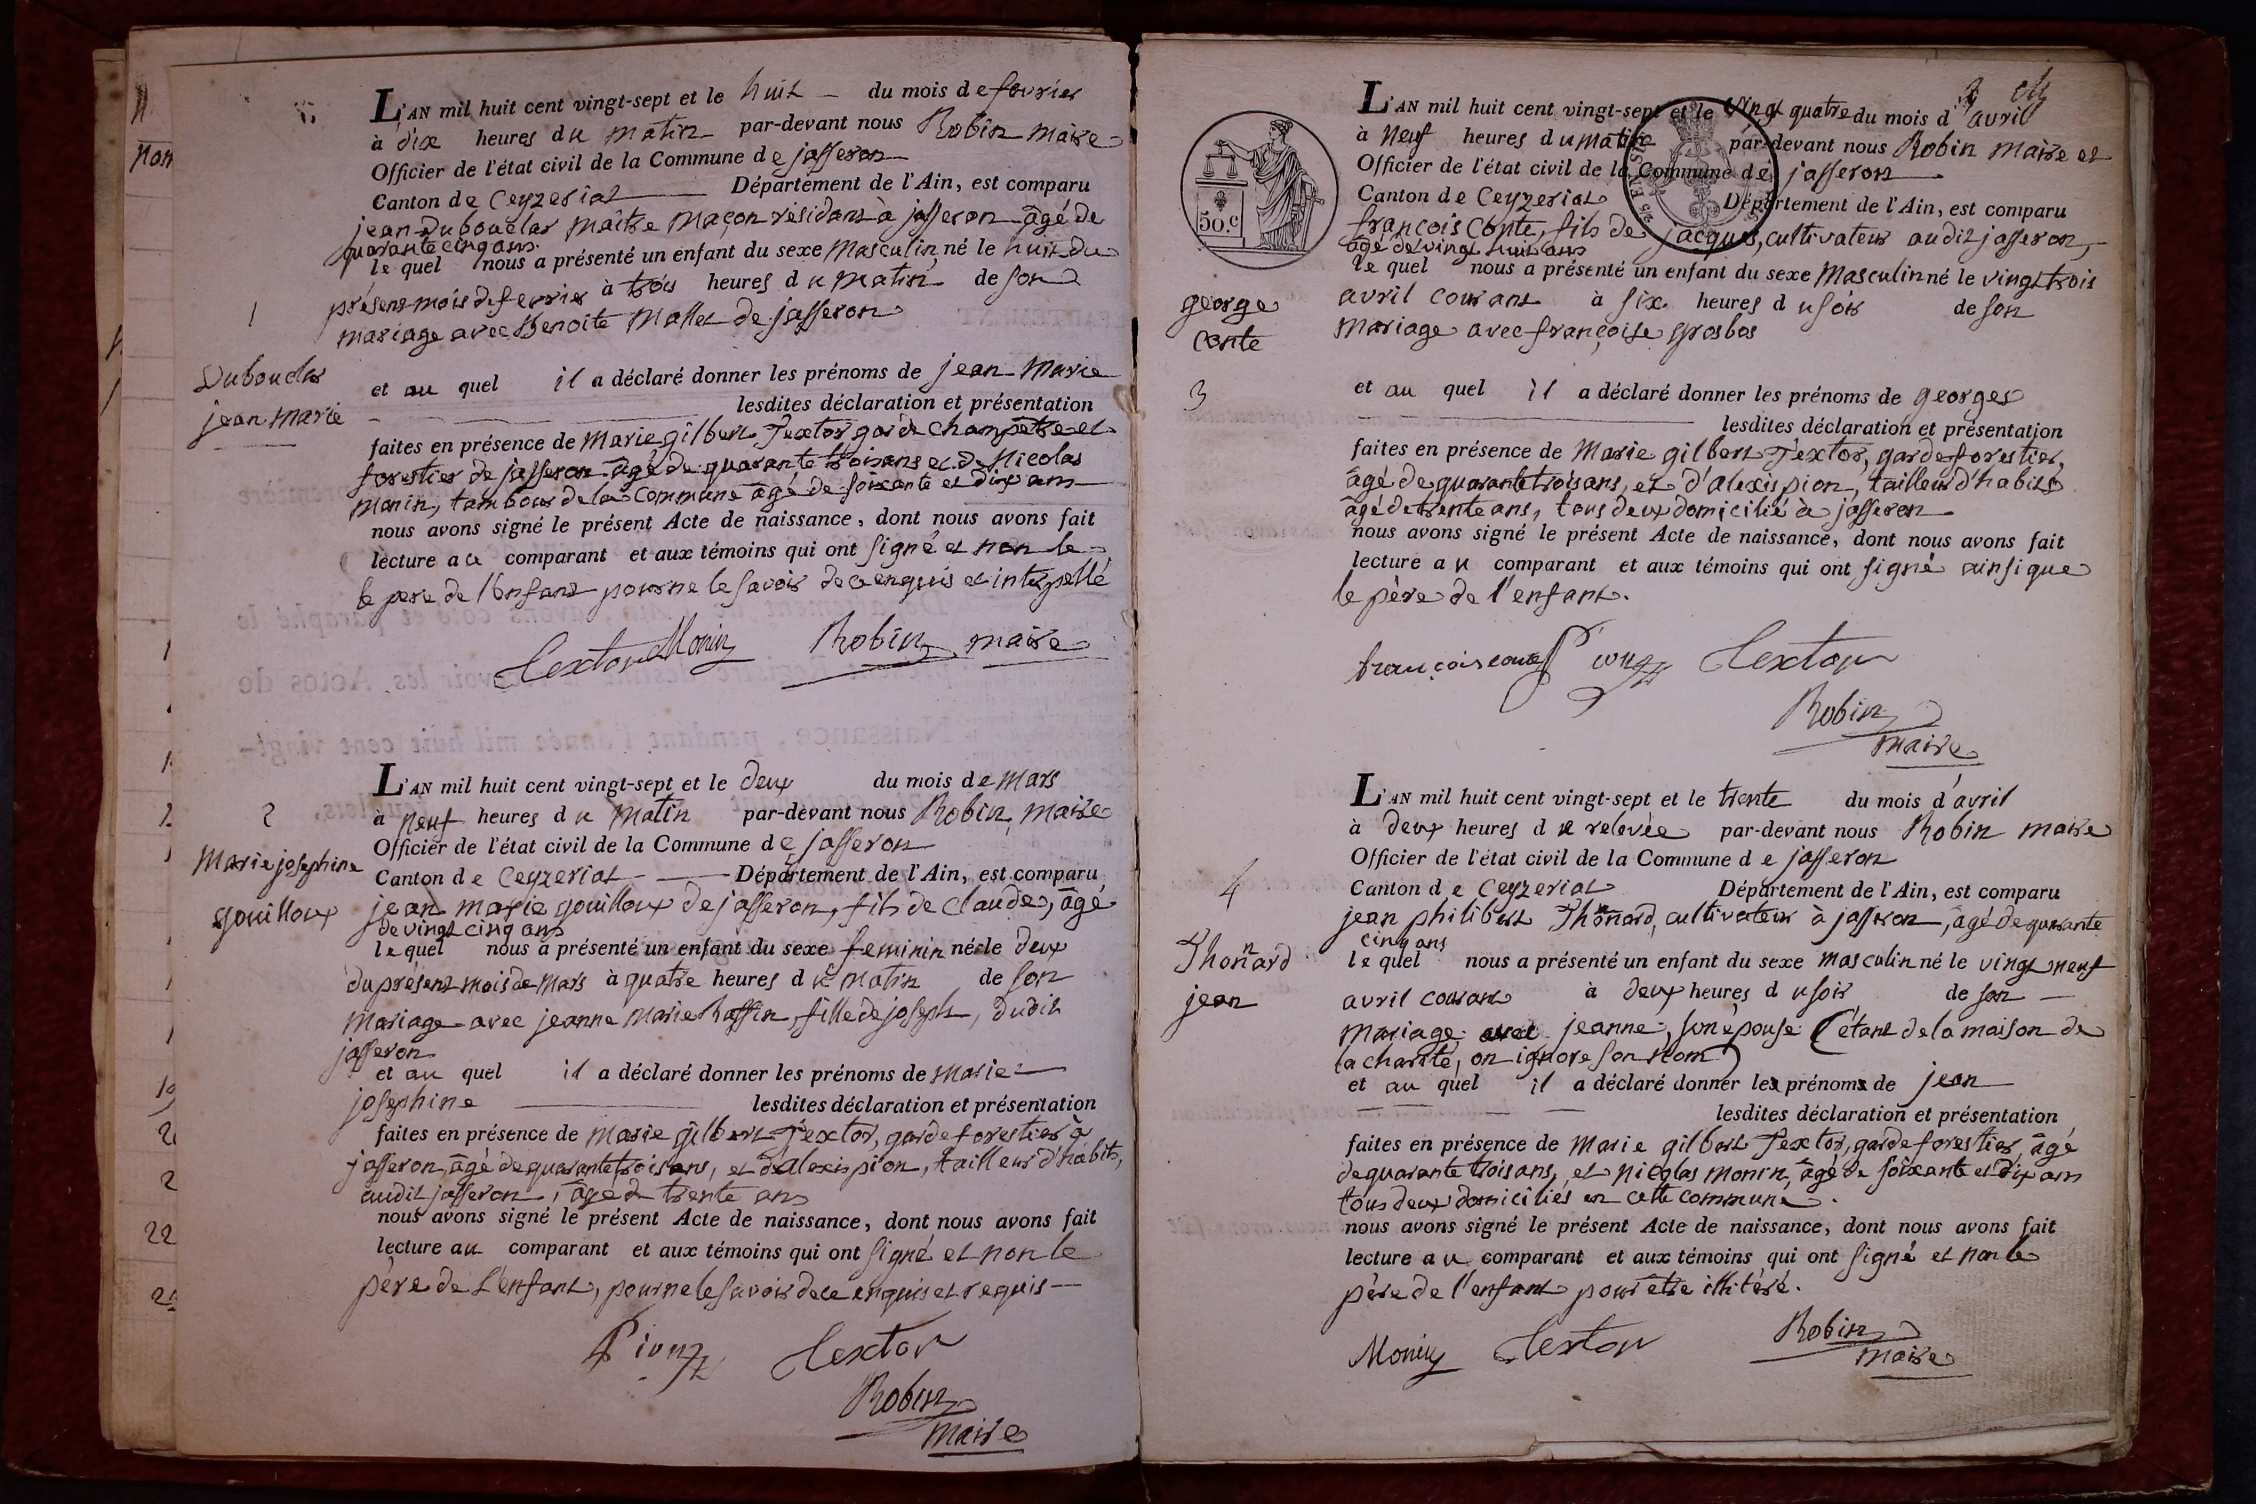 L'AN mil huit cent vingt-sept et le huit — du mois de fevrier
à dix heures du matin par-devant nous Robin maire
Officier de l'état civil de la Commune de jasseron
Canton de Ceyzeriat — Département de l'Ain, est comparu
jean Dubouclar maître maçon résidant à jasseron âgé de
quarante cinq ans.
le quel nous a présenté un enfant du sexe Masculin né le huit du
présent mois de fevrier à trois heures du matin de son
mariage avec Benoite Mallet de jasseron
1
Dubouclar
jean marie
et au quel il a déclaré donner les prénoms de jean Marie
lesdites déclaration et présentation
faites en présence de Marie gilbert Textor garde champêtre et
forestier de jasseron âgé de quarante trois ans et de Nicolas
monin, tambour de la Commune âgé de soixante et dix ans
nous avons signé le présent Acte de naissance, dont nous avons fait
lecture au comparant et aux témoins qui ont signé et non le
le pere de l'enfant pour ne le savoir de ce enquis et interpellé
Textor Monin Robin maire
L'AN mil huit cent vingt-sept et le deux du mois de mars
à neuf heures du matin par-devant nous Robin, maire
Officier de l'état civil de la Commune de jasseron
Canton de Ceyzeriat — Département de l'Ain, est comparu
2
Marie josephine
gouilloux
jean marie gouilloux de jasseron, fils de claude, âgé
de vingt cinq ans
le quel nous a présenté un enfant du sexe feminin né le deux
du présent mois de mars à quatre heures du matin de son
mariage avec jeanne marie Raffin, fille de joseph, dudit
jasseron
et au quel il a déclaré donner les prénoms de marie
josephine — lesdites déclaration et présentation
faites en présence de marie gilbert Textor, garde forestier à
jasseron, âgé de quarante trois ans, et d'alexis pion, tailleur d'habits,
audit jasseron, âgé de trente ans
nous avons signé le présent Acte de naissance, dont nous avons fait
lecture au comparant et aux témoins qui ont signé et non le
père de l'enfant, pour ne le savoir de ce enquis et requis —
Pion Textor
Robin
maire
L'AN mil huit cent vingt-sept et le vingt quatre du mois d'avril
à neuf heures du matin par-devant nous Robin maire et
Officier de l'état civil de la Commune de jasseron
Canton de Ceyzeriat Département de l'Ain, est comparu
50.c
françois Conte, fils de jacques, cultivateur audit jasseron,
âgé de vingt huit ans
le quel nous a présenté un enfant du sexe Masculin né le vingt trois
avril courant à six heures du soir de son
mariage avec françoise grosbos
george
conte
3
et au quel il a déclaré donner les prénoms de georges
lesdites déclaration et présentation
faites en présence de Marie gilbert Textor, garde forestier,
âgé de quarante trois ans, et d'alexis pion, tailleur d'habits
âgé de trente ans, tous deux domicilié à jasseron
nous avons signé le présent Acte de naissance, dont nous avons fait
lecture au comparant et aux témoins qui ont signé ainsi que
le père de l'enfant.
francois conte Pion Textor
Robin
maire
L'AN mil huit cent vingt-sept et le trente du mois d'avril
à deux heures de relevée par-devant nous Robin maire
Officier de l'état civil de la Commune de jasseron
Canton de Ceyzeriat Département de l'Ain, est comparu
4
Thonnard
jean
jean philibert Thonnard, cultivateur à jasseron, âgé de quarante
cinq ans
le quel nous a présenté un enfant du sexe masculin né le vingt neuf
avril courant à deux heures du soir de son —
mariage avec jeanne, son épouse (étant de la maison de
la charité, on ignore son nom)
et au quel il a déclaré donner les prénoms de jean
lesdites déclaration et présentation
faites en présence de Marie gilbert Textor, garde forestier, âgé
de quarante trois ans, et nicolas monin, âgé de soixante et dix ans
tous deux domiciliés en cette commune.
nous avons signé le présent Acte de naissance, dont nous avons fait
lecture au comparant et aux témoins qui ont signé et non le
père de l'enfant pour être illitéré.
Monin Textor Robin
maire